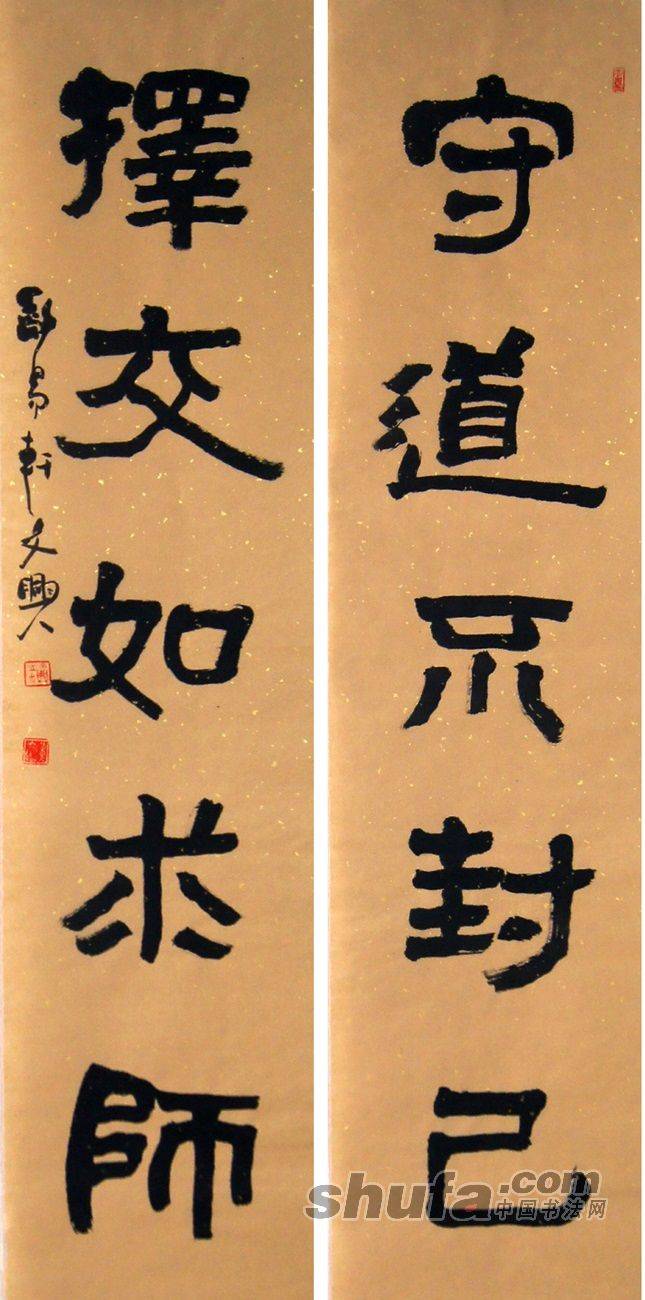 守道不封己
擇交如求師
易軒文興
shufa.com
中国书法网